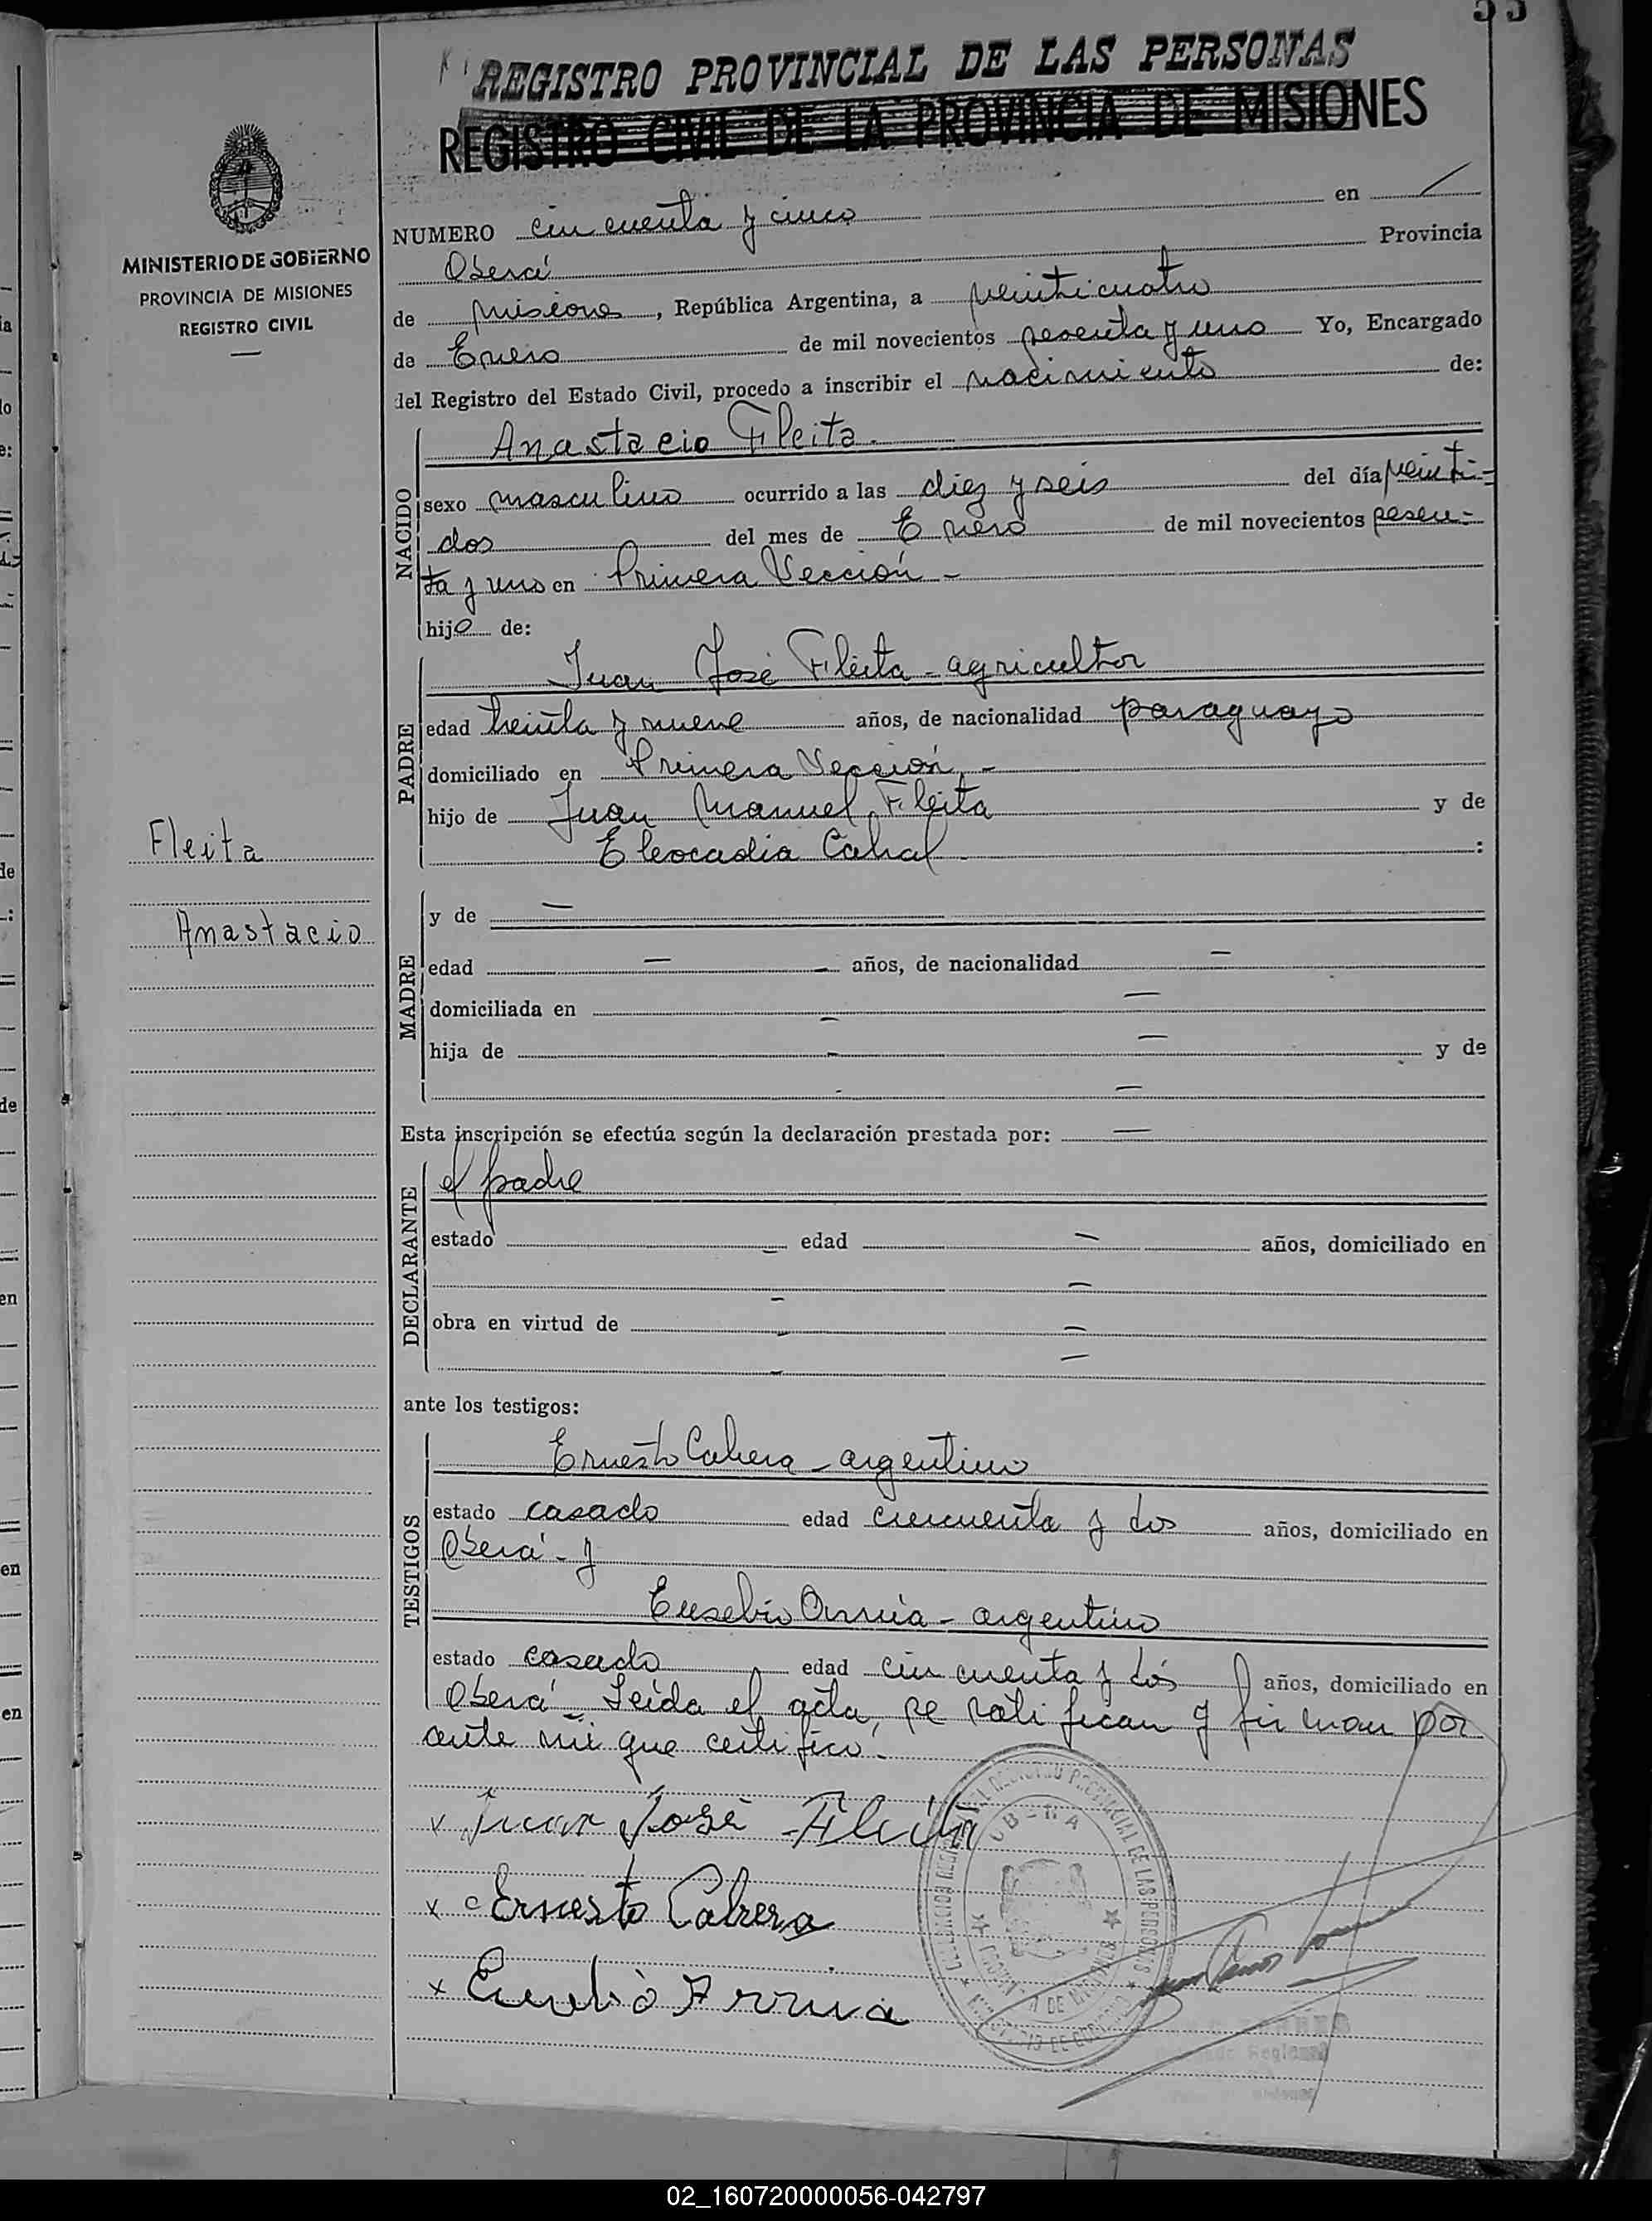 55
REGISTRO PROVINCIAL DE LAS PERSONAS
REGISTRO CIVIL DE LA PROVINCIA DE MISIONES
MINISTERIO DE GOBIERNO
PROVINCIA DE MISIONES
REGISTRO CIVIL
NUMERO cincuenta y cinco en
Oberá Provincia
de Misiones, República Argentina, a veinticuatro
de Enero de mil novecientos sesenta y uno Yo, Encargado
del Registro del Estado Civil, procedo a inscribir el nacimiento de:
NACIDO
Anastacio Fleita.
sexo masculino ocurrido a las diez y seis del día veinti=
dos del mes de Enero de mil novecientos sesen=
ta y uno en Primera Sección -
hijo de:
PADRE
Juan José Fleita - agricultor
edad treinta y nueve años, de nacionalidad paraguayo
domiciliado en Primera Sección. -
hijo de Juan Manuel Fleita y de
Eleocadia Cabral :
Fleita
Anastacio
MADRE
y de —
edad — años, de nacionalidad —
domiciliada en —
hija de — y de
—
Esta inscripción se efectúa según la declaración prestada por: —
DECLARANTE
el padre
estado — edad — años, domiciliado en
—
obra en virtud de —
—
ante los testigos:
TESTIGOS
Ernesto Cabrera - argentino
estado casado edad cincuenta y dos años, domiciliado en
Oberá - y
Eusebio Arrua - argentino
estado casado edad cincuenta y dós años, domiciliado en
Oberá - Leída el acta, se ratifican y firman por
ante mi que certifico.-
x Juan José Fleita
x Ernesto Cabrera
x Eusebio Arrua
PROVINCIAL DE LAS PERSONAS
02_160720000056-042797